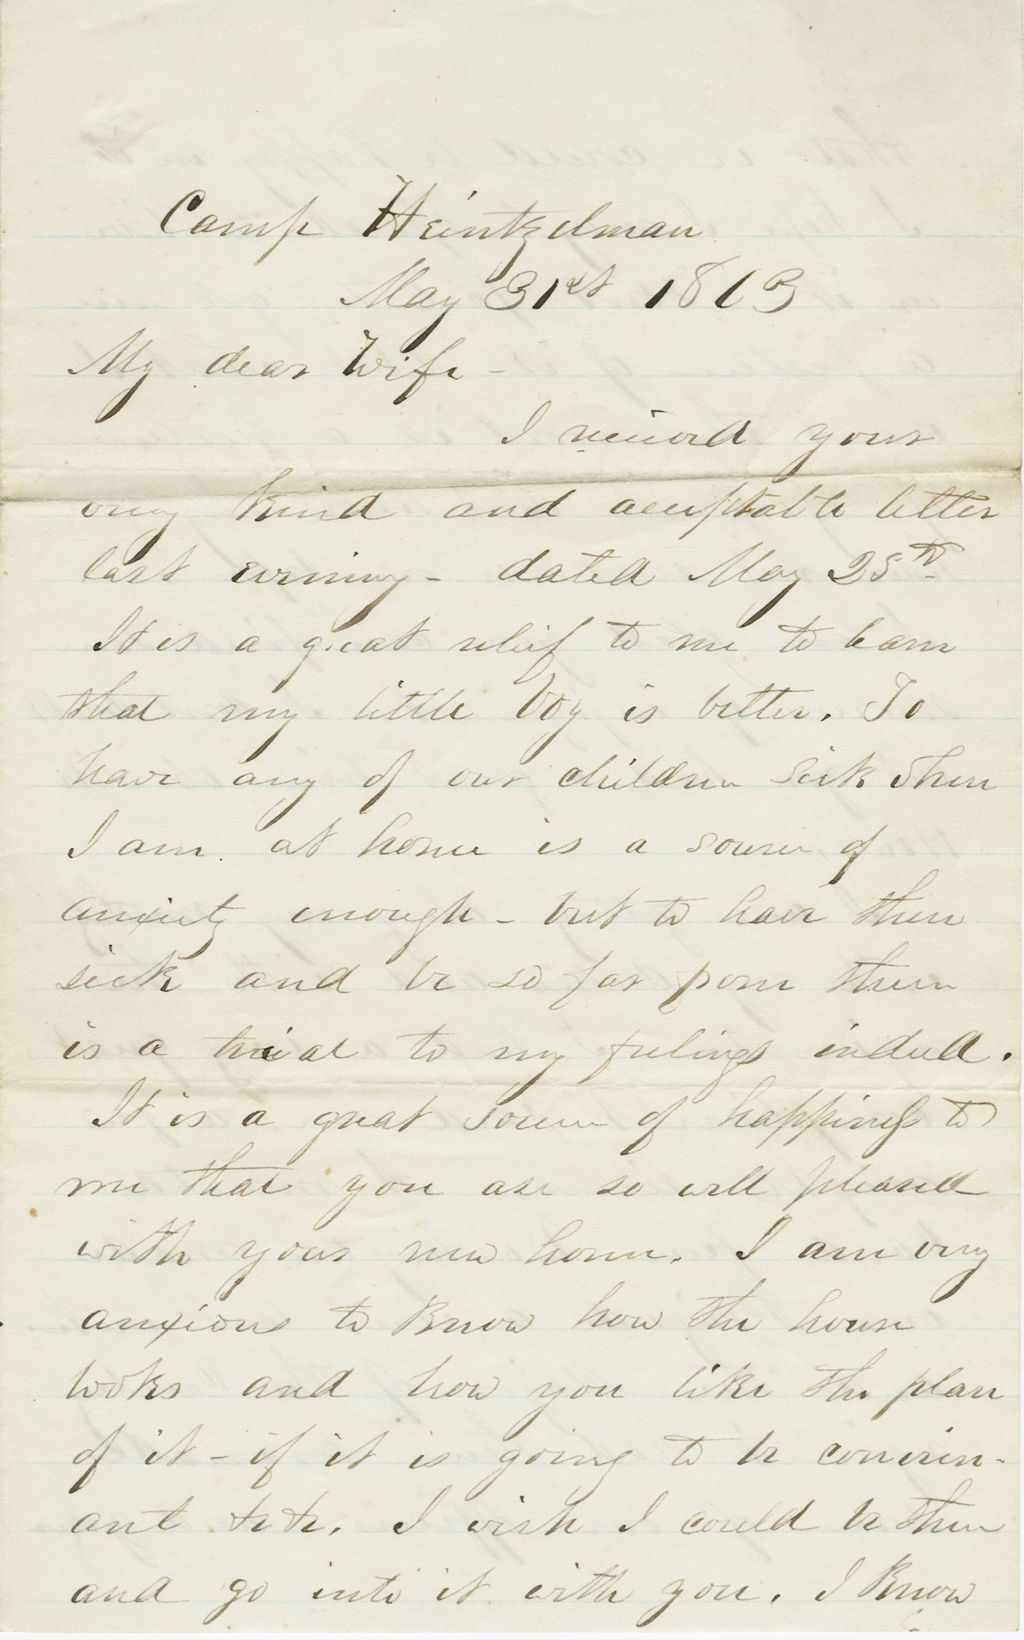 Camp Heintzelman
May 31st 1863
My dear Wife -
I recieved your
very kind and acceptable letter
last evening - dated May 25th
It is a great relief to me to learn
that my little boy is better. To
have any of our children sick when
I am at home is a source of
anxiety enough - but to have them
sick and be so far from them
is a trial to my feelings indeed.
It is a great source of happiness to
me that you are so well pleased
with your new home. I am very
anxious to know how the house
looks and how you like the plan
of it - if it is going to be convein-
ant &c &c. I wish I could be there
and go into it with you. I know